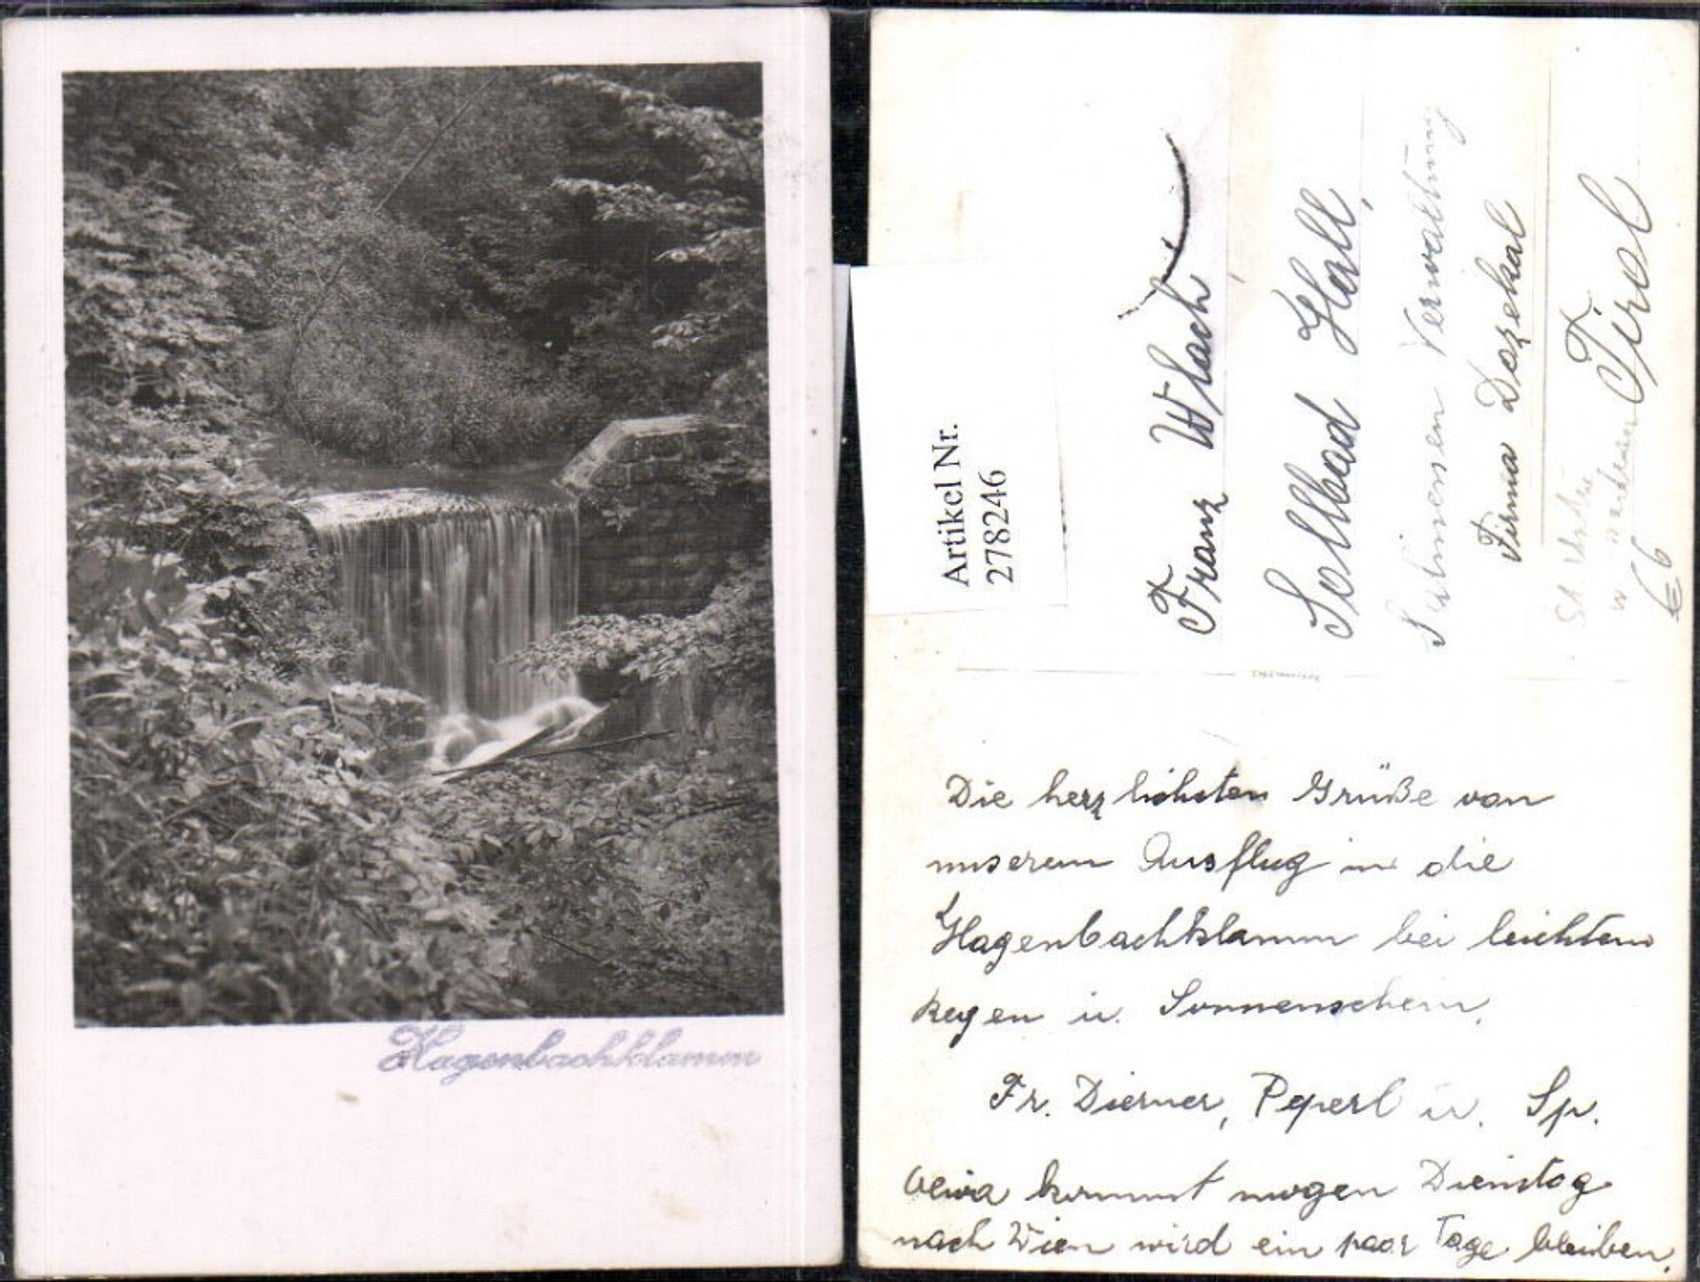 Hagenbachklamm
Artikel Nr.
278246
Franz Wlach
Sollbad Hall,
Salinenen Verwaltung
Firma Dozekal
Tirol
St. Andrä
€ 6
Die herzlichsten Grüße von
unserem Ausflug in die
Hagenbachklamm bei leichtem
Regen u. Sonnenschein.
Fr. Dierner, Peperl u. Sp.
kommt morgen Dienstag
nach Wien wird ein paar Tage bleiben.